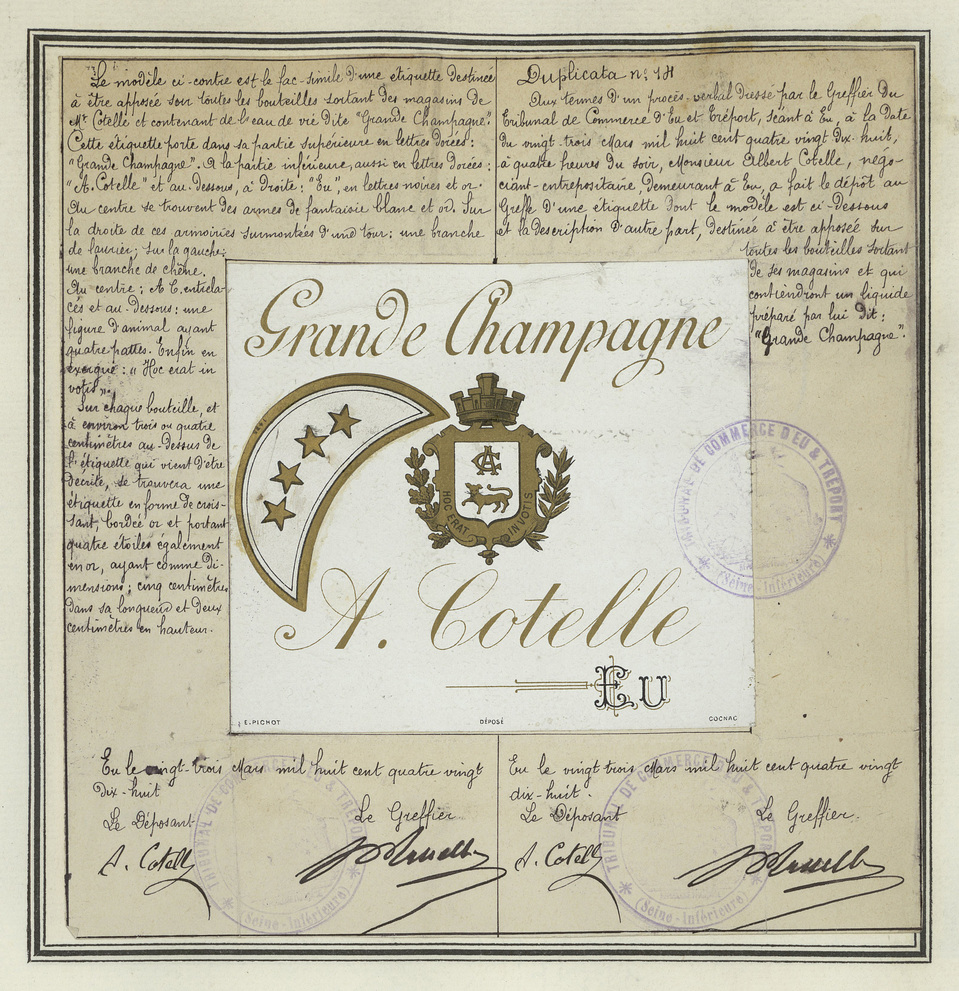 Le modèle ci-contre est le fac-simile d'une étiquette destinée
à être apposée sur toutes les bouteilles sortant des magasins de
Mr. Cotelle et contenant de l'eau de vie dite "Grande Champagne"
Cette étiquette porte dans sa partie supérieure en lettres dorées:
"Grande Champagne". A la partie inférieure, aussi en lettres dorées:
"A. Cotelle" et au-dessous, à droite: "Eu", en lettres noires et or.
Au centre se trouvent des armes de fantaisie blanc et or. Sur
la droite de ces armoiries surmontées d'une tour: une branche
de laurier; sur la gauche:
une branche de chêne.
Au centre: A C. entrela-
cés et au-dessous: une
figure d'animal ayant
quatre pattes. Enfin en
exergue: "Hoc erat in
votis".
Sur chaque bouteille, et
à environ trois ou quatre
centimètres au-dessus de
l'étiquette qui vient d'être
décrite, se trouvera une
étiquette en forme de crois-
sant, bordée or et portant
quatre étoiles également
en or, ayant comme di-
mensions: cinq centimètres
dans sa longueur et deux
centimètres en hauteur.
Duplicata n° 14
Aux termes d'un procès-verbal dressé par le Greffier du
Tribunal de Commerce d'Eu et Tréport, séant à Eu, à la date
du vingt-trois Mars mil huit cent quatre vingt dix-huit,
à quatre heures du soir, Monsieur Albert Cotelle, négo-
ciant-entrepositaire, demeurant à Eu, a fait le dépôt au
Greffe d'une étiquette dont le modèle est ci-dessous
et la description d'autre part, destinée à être apposée sur
toutes les bouteilles sortant
de ses magasins et qui
contiendront un liquide
préparé par lui dit:
"Grande Champagne".
Grande Champagne
AC
HOC ERAT IN VOTIS
A. Cotelle
Eu
E. PICHOT DÉPOSÉ COGNAC
TRIBUNAL DE COMMERCE D'EU & TRÉPORT
(Seine-Inférieure)
Eu le vingt-trois Mars mil huit cent quatre vingt
dix-huit
Le Déposant Le Greffier
A. Cotelle
TRIBUNAL DE COMMERCE D'EU & TRÉPORT
(Seine-Inférieure)
Eu le vingt trois Mars mil huit cent quatre vingt
dix-huit.
Le Déposant Le Greffier
A. Cotelle
TRIBUNAL DE COMMERCE D'EU & TRÉPORT
(Seine-Inférieure)